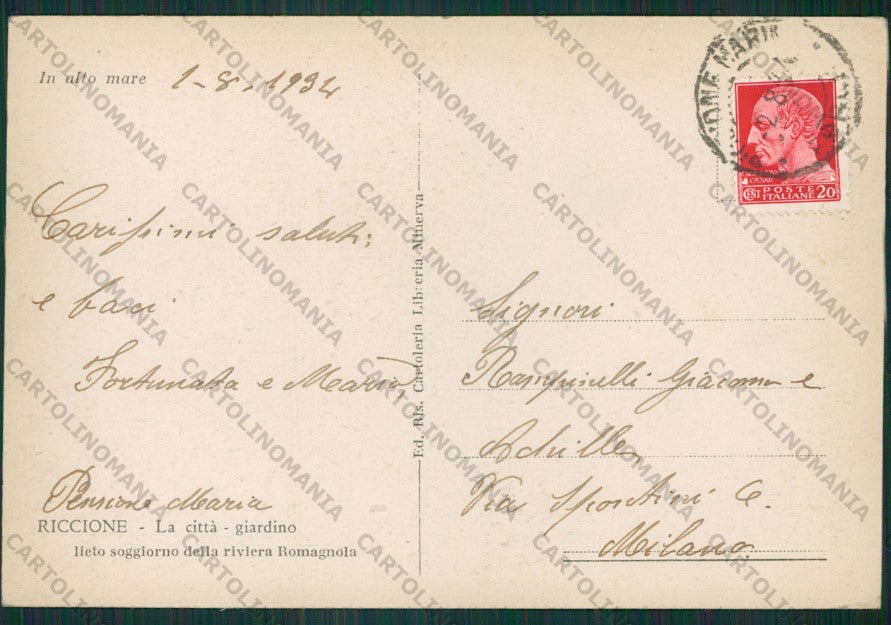 In alto mare 1-8-1934
Carissimi saluti
e baci
Fortunata e Maria
Pensione Maria
RICCIONE - La città - giardino
lieto soggiorno della riviera Romagnola
Ed. Ris. Cartoleria Libreria Minerva
CAESAR
CENT POSTE ITALIANE 20
Signori
Rampinelli Giacomo e
Achille
Via Spontini 6.
Milano
CARTOLINOMANIA